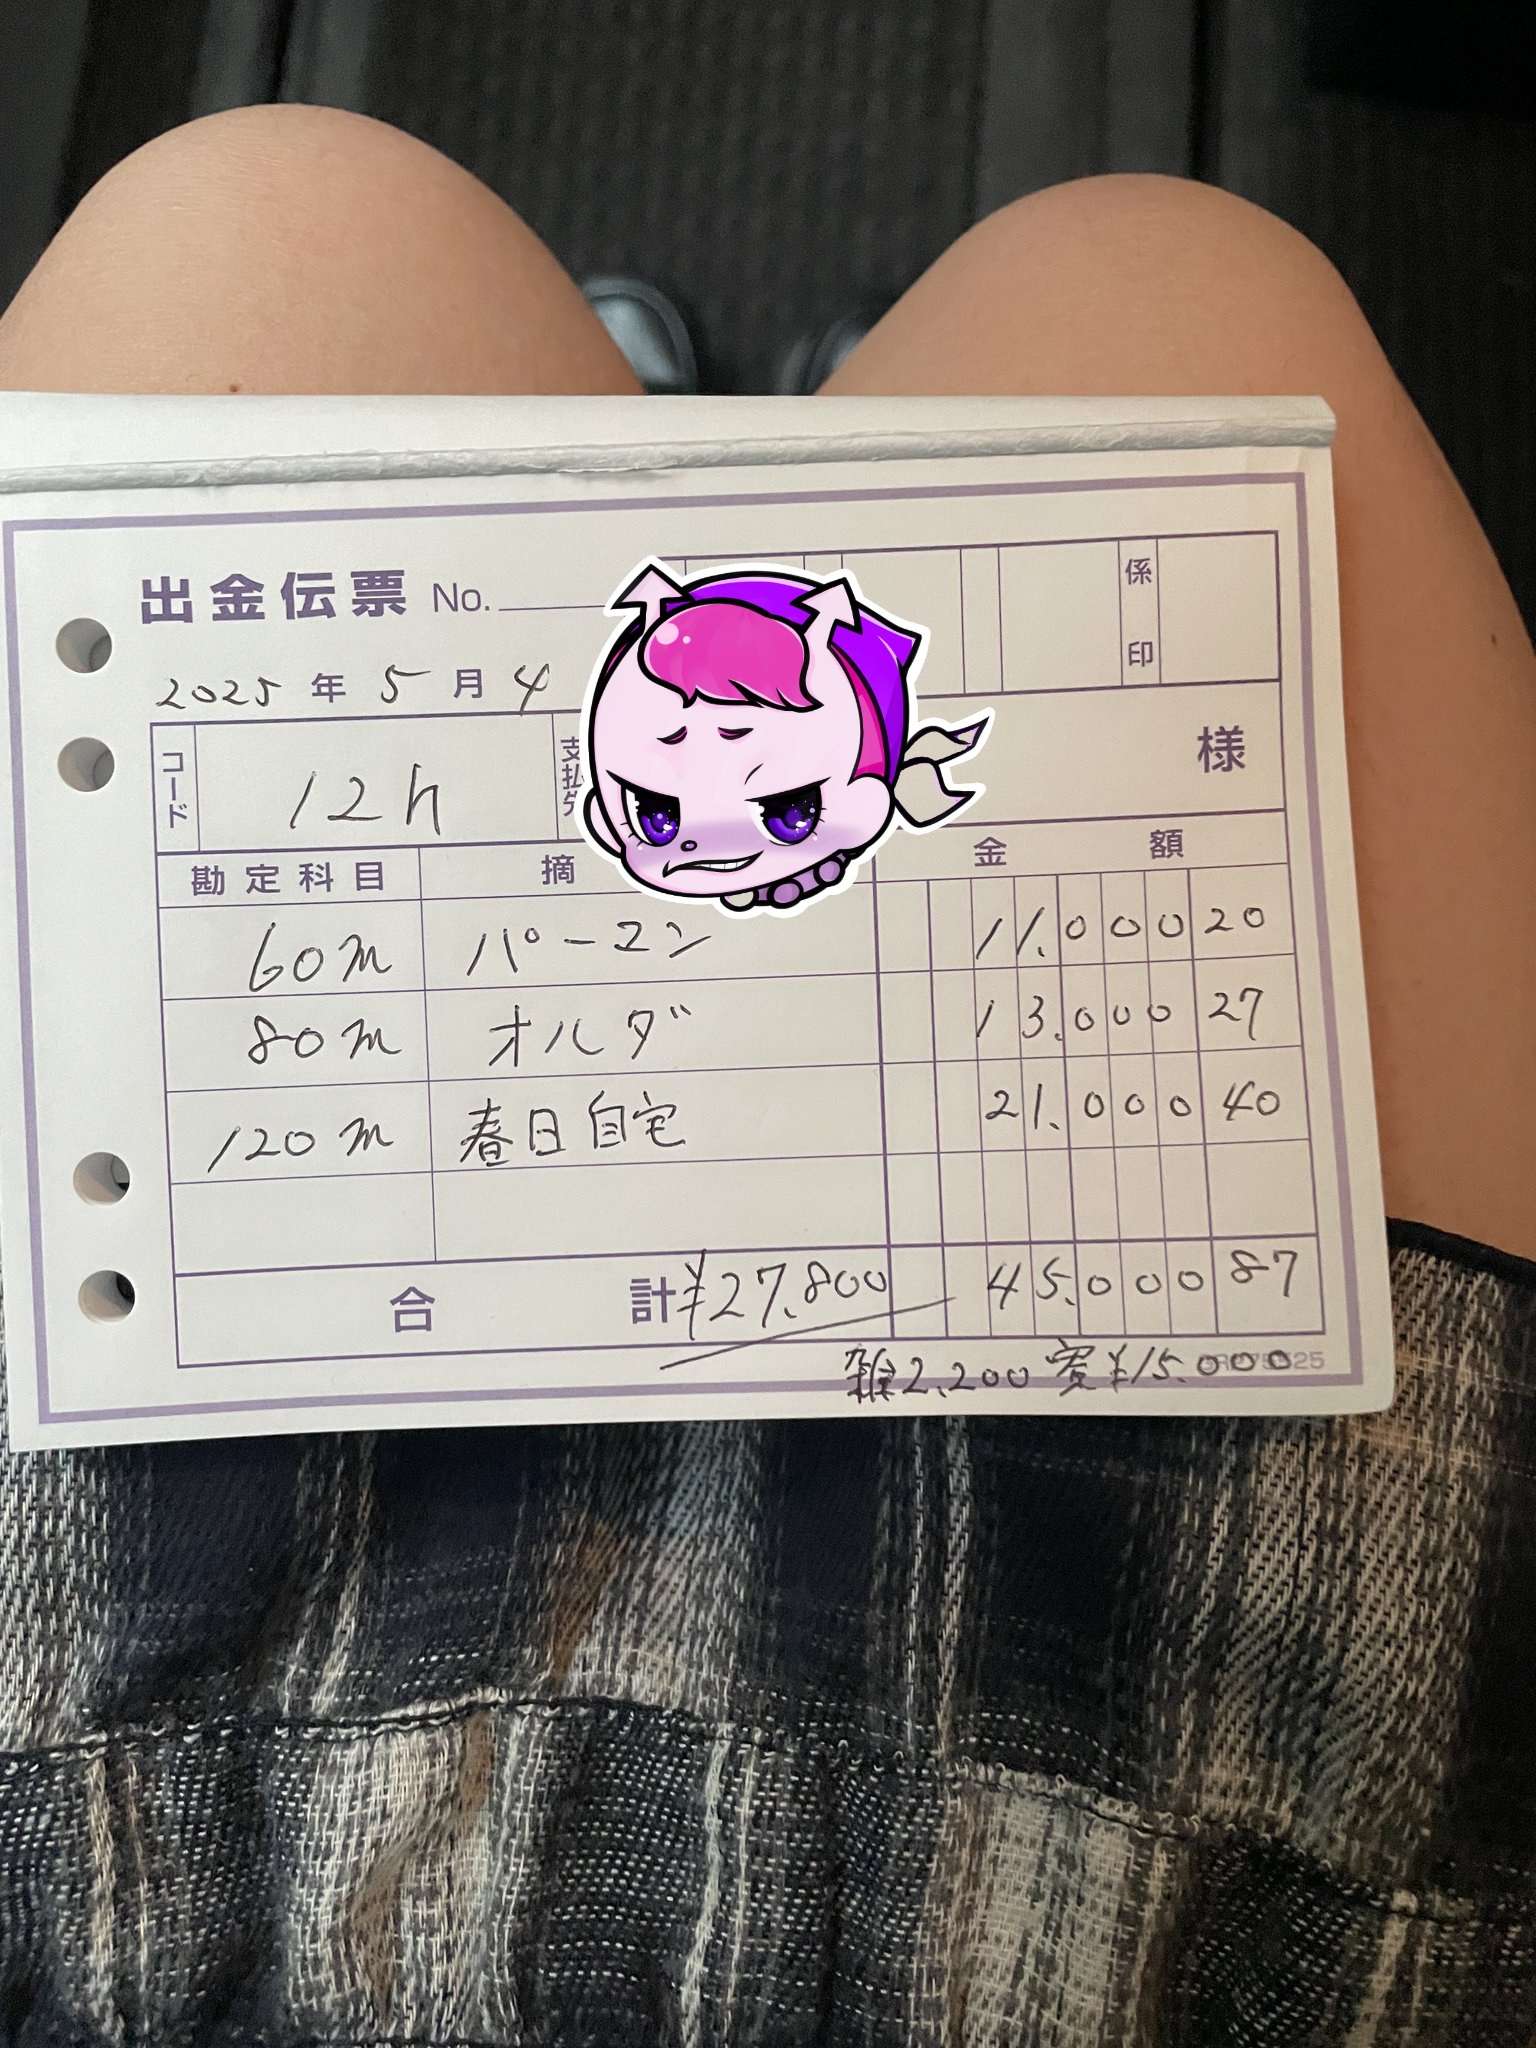 出金伝票 No.
係印
2025年 5月 4
コード 12h 支払先 様
勘定科目 摘 金額
60m パーマン 11.000 20
80m オルダ 13.000 27
120m 春日自宅 21.000 40
合計 ¥27.800 45.000 87
雑2.200 寮¥15.000